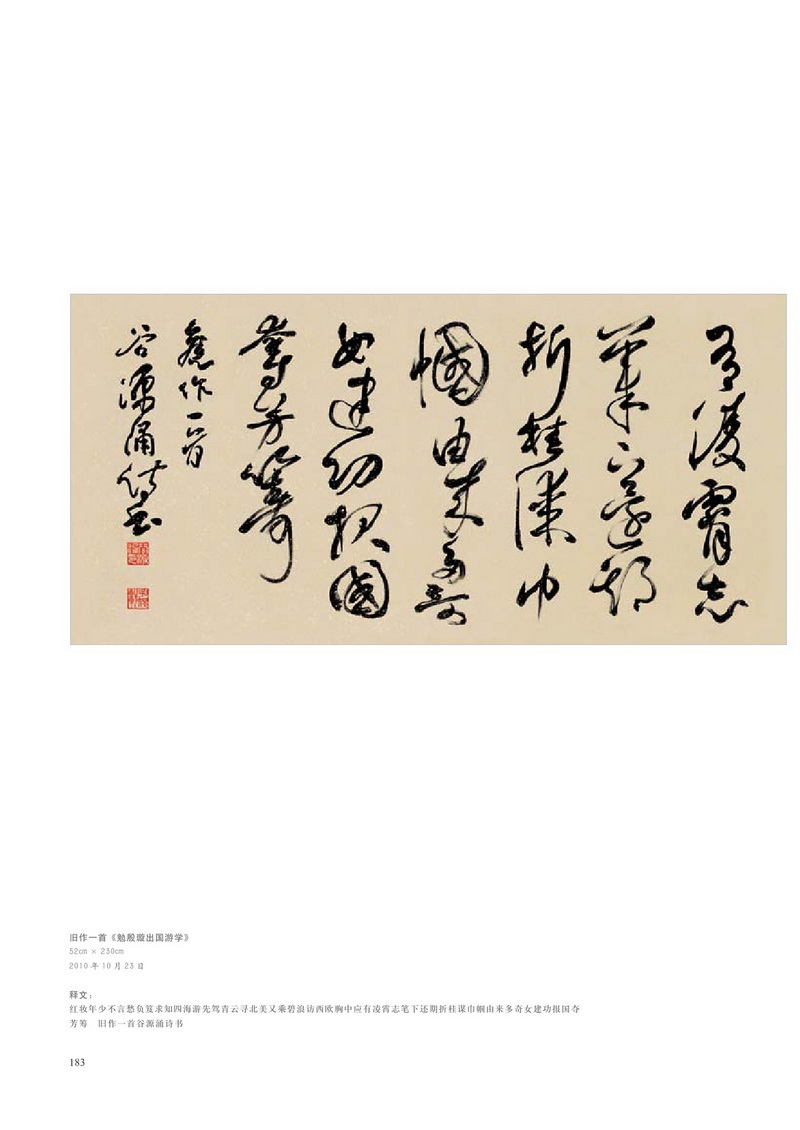 有凌霄志
笔下还期
折桂谋巾
帼由来多奇
女建功报国
夺芳筹
旧作一首
谷源涌诗书
旧作一首《勉殷璇出国游学》
52cm × 230cm
2010 年 10 月 23 日
释文：
红妆年少不言愁负笈求知四海游先驾青云寻北美又乘碧浪访西欧胸中应有凌霄志笔下还期折桂谋巾帼由来多奇女建功报国夺
芳筹　旧作一首谷源涌诗书
183